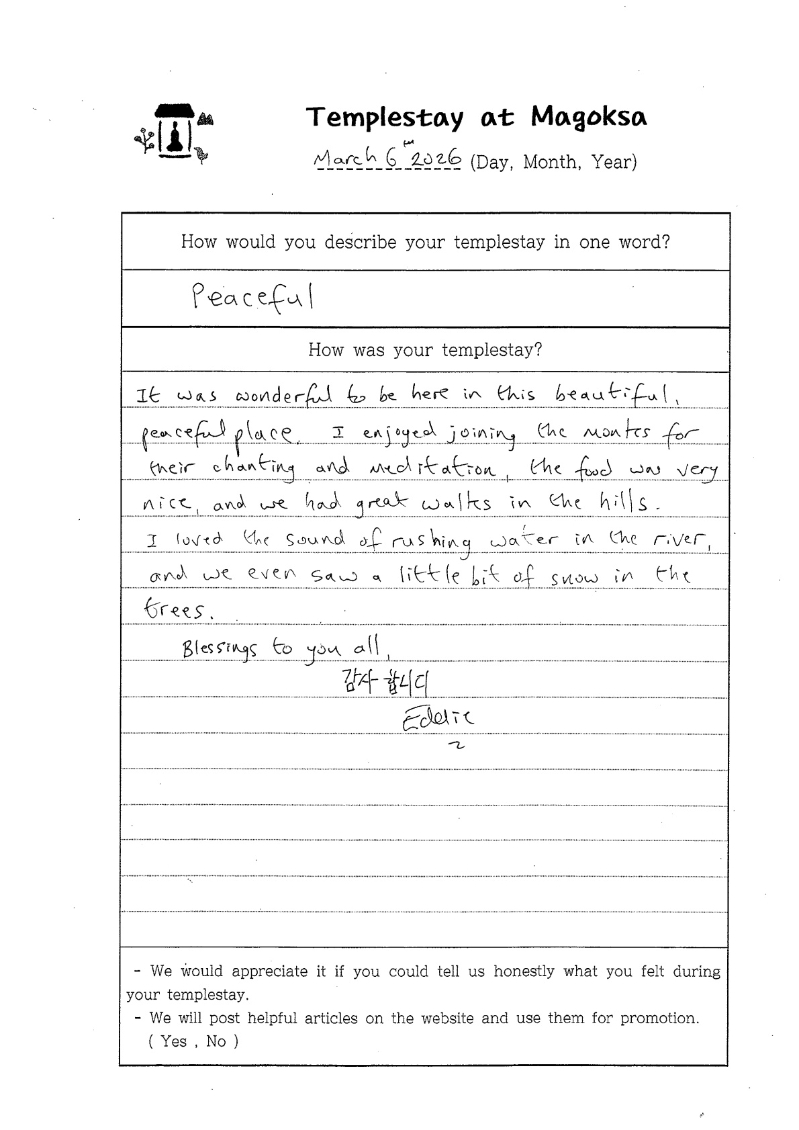 Templestay at Magoksa
March 6th 2026 (Day, Month, Year)
How would you describe your templestay in one word?
Peaceful
How was your templestay?
It was wonderful to be here in this beautiful,
peaceful place. I enjoyed joining the monks for
their chanting and meditation, the food was very
nice, and we had great walks in the hills.
I loved the sound of rushing water in the river,
and we even saw a little bit of snow in the
trees.
Blessings to you all,
감사 합니다
- We would appreciate it if you could tell us honestly what you felt during
your templestay.
- We will post helpful articles on the website and use them for promotion.
( Yes , No )